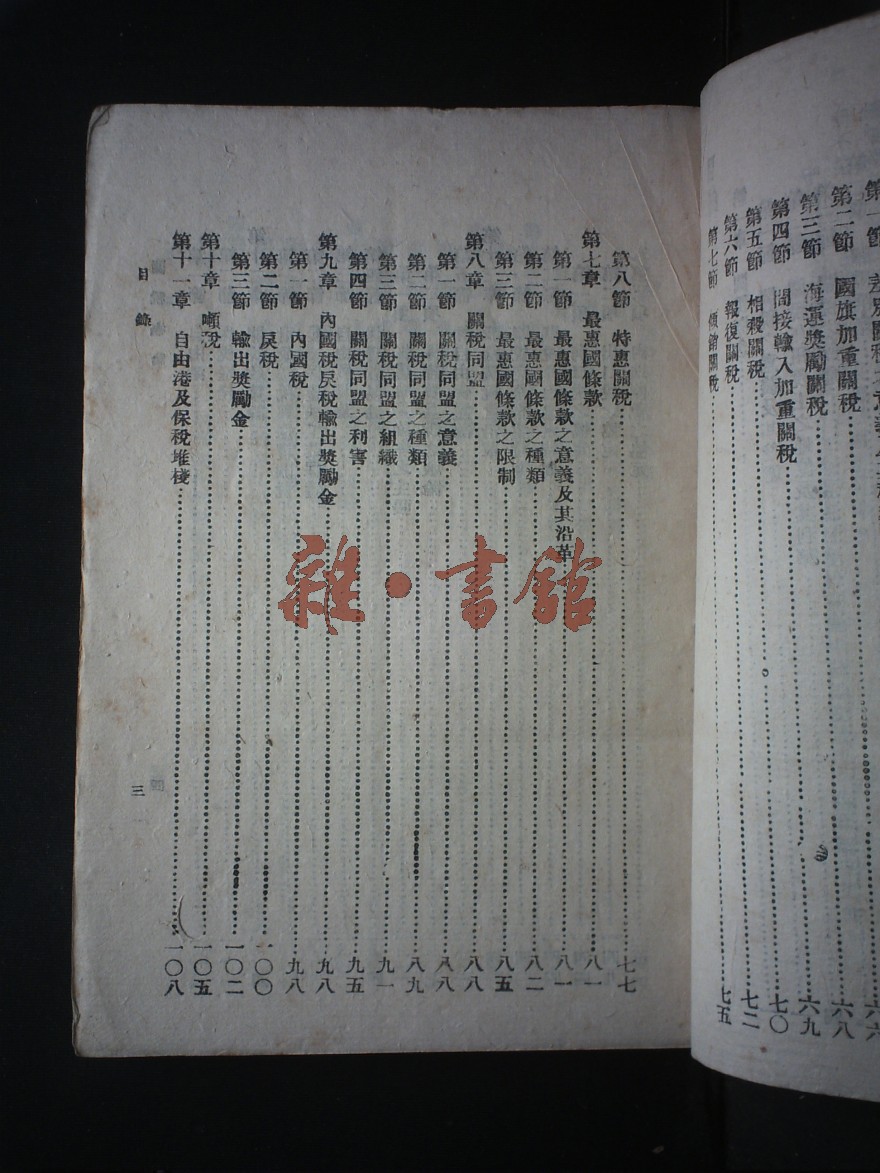 第二節　國旗加重關稅 六八
第三節　海運獎勵關稅 六九
第四節　間接輸入加重關稅 七〇
第五節　相殺關稅 七二
第六節　報復關稅
第七節　傾銷關稅 七五
第八節　特惠關稅 七七
第七章　最惠國條款 八一
第一節　最惠國條款之意義及其沿革 八一
第二節　最惠國條款之種類 八二
第三節　最惠國條款之限制 八五
第八章　關稅同盟 八八
第一節　關稅同盟之意義 八八
第二節　關稅同盟之種類 八九
第三節　關稅同盟之組織 九一
第四節　關稅同盟之利害 九五
第九章　內國稅戾稅輸出獎勵金 九八
第一節　內國稅 九八
第二節　戾稅 一〇〇
第三節　輸出獎勵金 一〇二
第十章　噸稅 一〇五
第十一章　自由港及保稅堆棧 一〇八
目錄
三
雜·書館